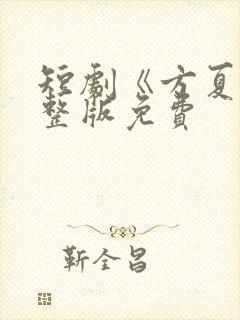 短劇《方夏
整版免費
靳全昌